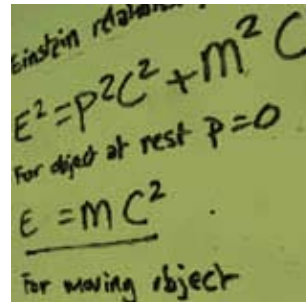 Einstein
E² = P²C² + m² C
For object at rest P = 0
E = m C²
For moving object